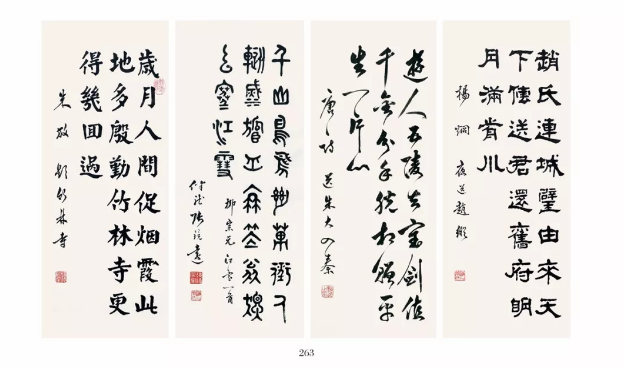 趙氏連城璧由來天
下傳送君還舊府明
月滿前川
楊炯 夜送趙縱
遊人五陵去寶劍值
千金分手脫相贈平
生一片心
送朱大入秦
千山鳥飛絕萬徑人
蹤滅孤舟蓑笠翁獨
釣寒江雪
柳宗元 江雪一首
歲月人間促烟霞此
地多殷勤竹林寺更
得幾回過
朱放 題竹林寺
263